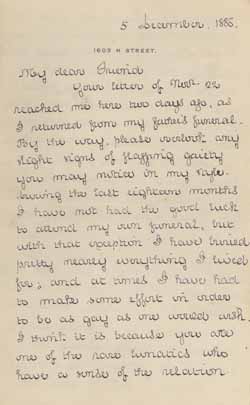 5 December, 1886.
1603 H STREET.
My dear Friend
Your letter of Nov. 22
reached me here two days ago, as
I returned from my father's funeral.
By the way, please overlook any
slight signs of flagging gaiety
you may notice in my style.
During the last eighteen months
I have not had the good luck
to attend my own funeral, but
with that exception I have buried
pretty nearly everything I lived
for; and at times I have had
to make some effort in order
to be as gay as one would wish.
I think it is because you are
one of the rare lunatics who
have a sense of the relation